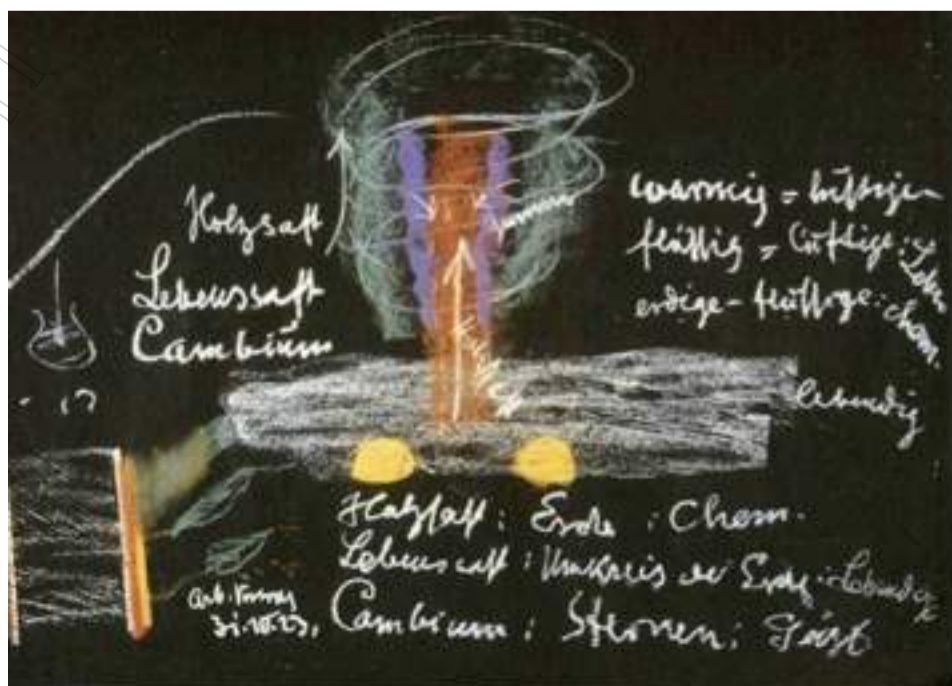 Holzsaft
Lebenssaft
Cambium
warmig = luftigen
flüssig = luftige : Leben
erdige - flüssige : chem.
lebendig
Holzsaft : Erde : Chem.
Lebenssaft : Umkreis der Erde : Lebendig
Cambium : Sternen : Geist
31.10.23.